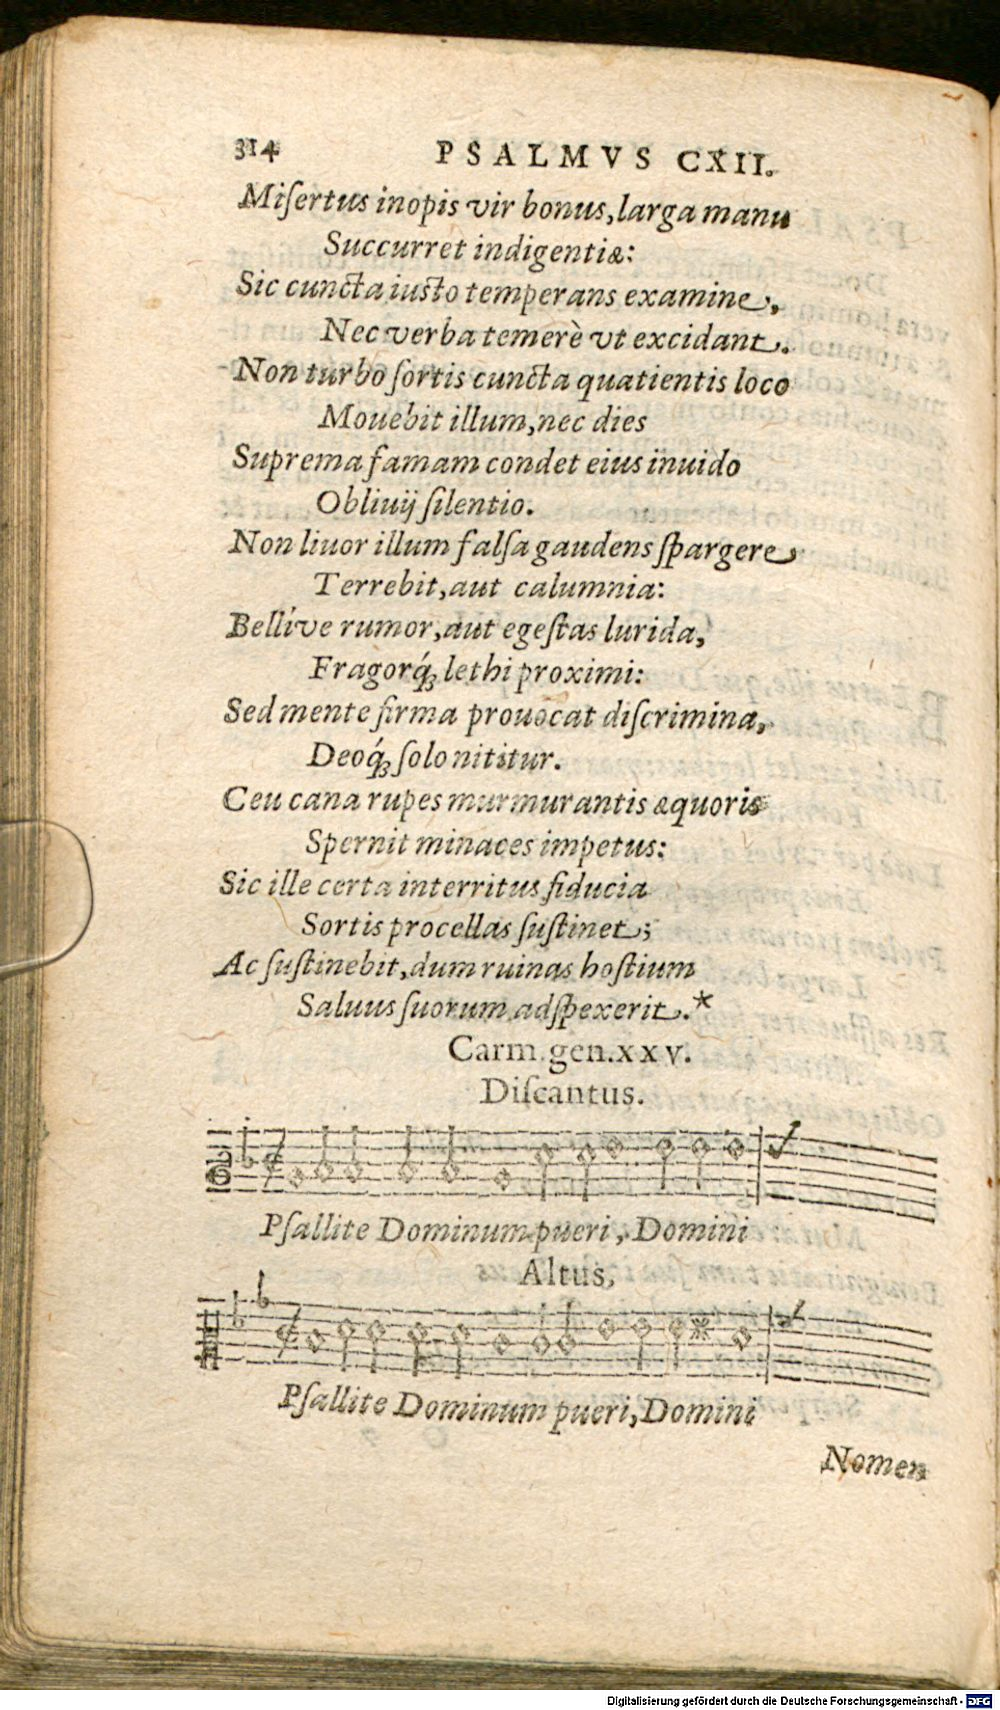 314 PSALMVS CXII.
Miſertus inopis vir bonus, larga manu
Succurret indigentiæ:
Sic cuncta iusto temperans examine,
Nec verba temerè vt excidant.
Non turbo ſortis cuncta quatientis loco
Mouebit illum, nec dies
Suprema famam condet eius inuido
Obliuij ſilentio.
Non liuor illum falſa gaudens ſpargere
Terrebit, aut calumnia:
Bellíve rumor, aut egeſtas lurida,
Fragorq́; lethi proximi:
Sed mente firma prouocat diſcrimina,
Deoq́; ſolo nititur.
Ceu cana rupes murmurantis æquoris
Spernit minaces impetus:
Sic ille certa interritus fiducia
Sortis procellas ſuſtinet;
Ac ſuſtinebit, dum ruinas hoſtium
Saluus ſuorum adſpexerit.*
Carm. gen. xxv.
Diſcantus.
Pſallite Dominum pueri, Domini
Altus.
Pſallite Dominum pueri, Domini
Nomen
Digitalisierung gefördert durch die Deutsche Forschungsgemeinschaft - DFG